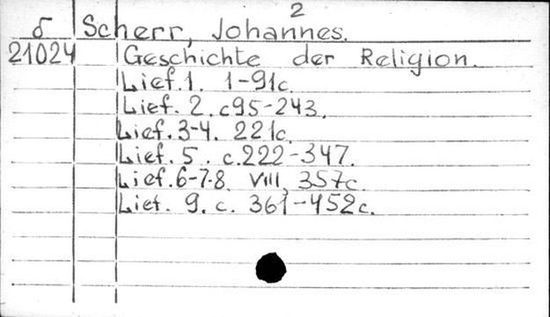 2
δ Scherr, Johannes.
21024 Geschichte der Religion.
Lief. 1. 1-91c.
Lief. 2. c95-243.
Lief. 3-4. 221c.
Lief. 5. c.222-347.
Lief. 6-7-8. VIII, 357c.
Lief. 9. c. 361-452c.